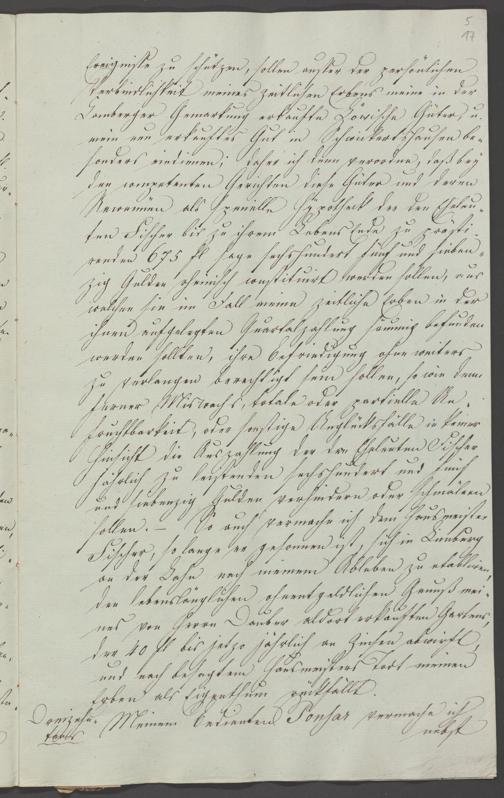 5
17
Ereigniße zu schützen, sollen ausser der persönlichen
Verbindlichkeit meines zeitlichen Erbens meine in der
Camberger Gemarkung erkaufte Güter u.
mein erkauftes Gut in be-
sonders; daher ich denn verordne, daß bey
den competenten Gerichten diese Güter und deren
Revenuen als specielle Hypotheck der den Eheleu-
ten Fischer bis zu ihrem Lebens Ende zu prästi-
renden 675 fl sage sechshundert fünf und sieben-
zig Gulden rheinisch constituirt werden sollen, aus
welchen sie im Fall meine zeitliche Erben in der
ihnen aufgelegten Quartalzahlung säumig befunden
werden sollten, ihre Befriedigung ohne weiters
zu verlangen berechtigt sein sollen, so wie denn
ferner Miswachs, totale oder partielle Un-
fruchtbarkeit, oder sonstige Unglücksfälle in keiner
Hinsicht die Auszahlung der den Eheleuten Fischer
jährlich zu leistenden sechshundert und fünf
und siebenzig Gulden verhindern oder schmälern
sollen. — So auch vermache ich dem Hausmeister
Fischer, so lange er gesonnen ist, sich in Limburg
an der Lahn nach meinem Ableben zu etabliren,
den lebenslänglichen ohnentgeldlichen Genuß mei-
nes von Herrn Dauber aldort erkauften Gartens,
der 40 fl bis jetzo jährlich an Zinsen abwirft,
und nach besagtem Hausmeisters Tod meinen
Erben als Eigenthum rückfällt.
Dreizehn-
tens Meinem Bedienten Ponsar vermache ich
nebst